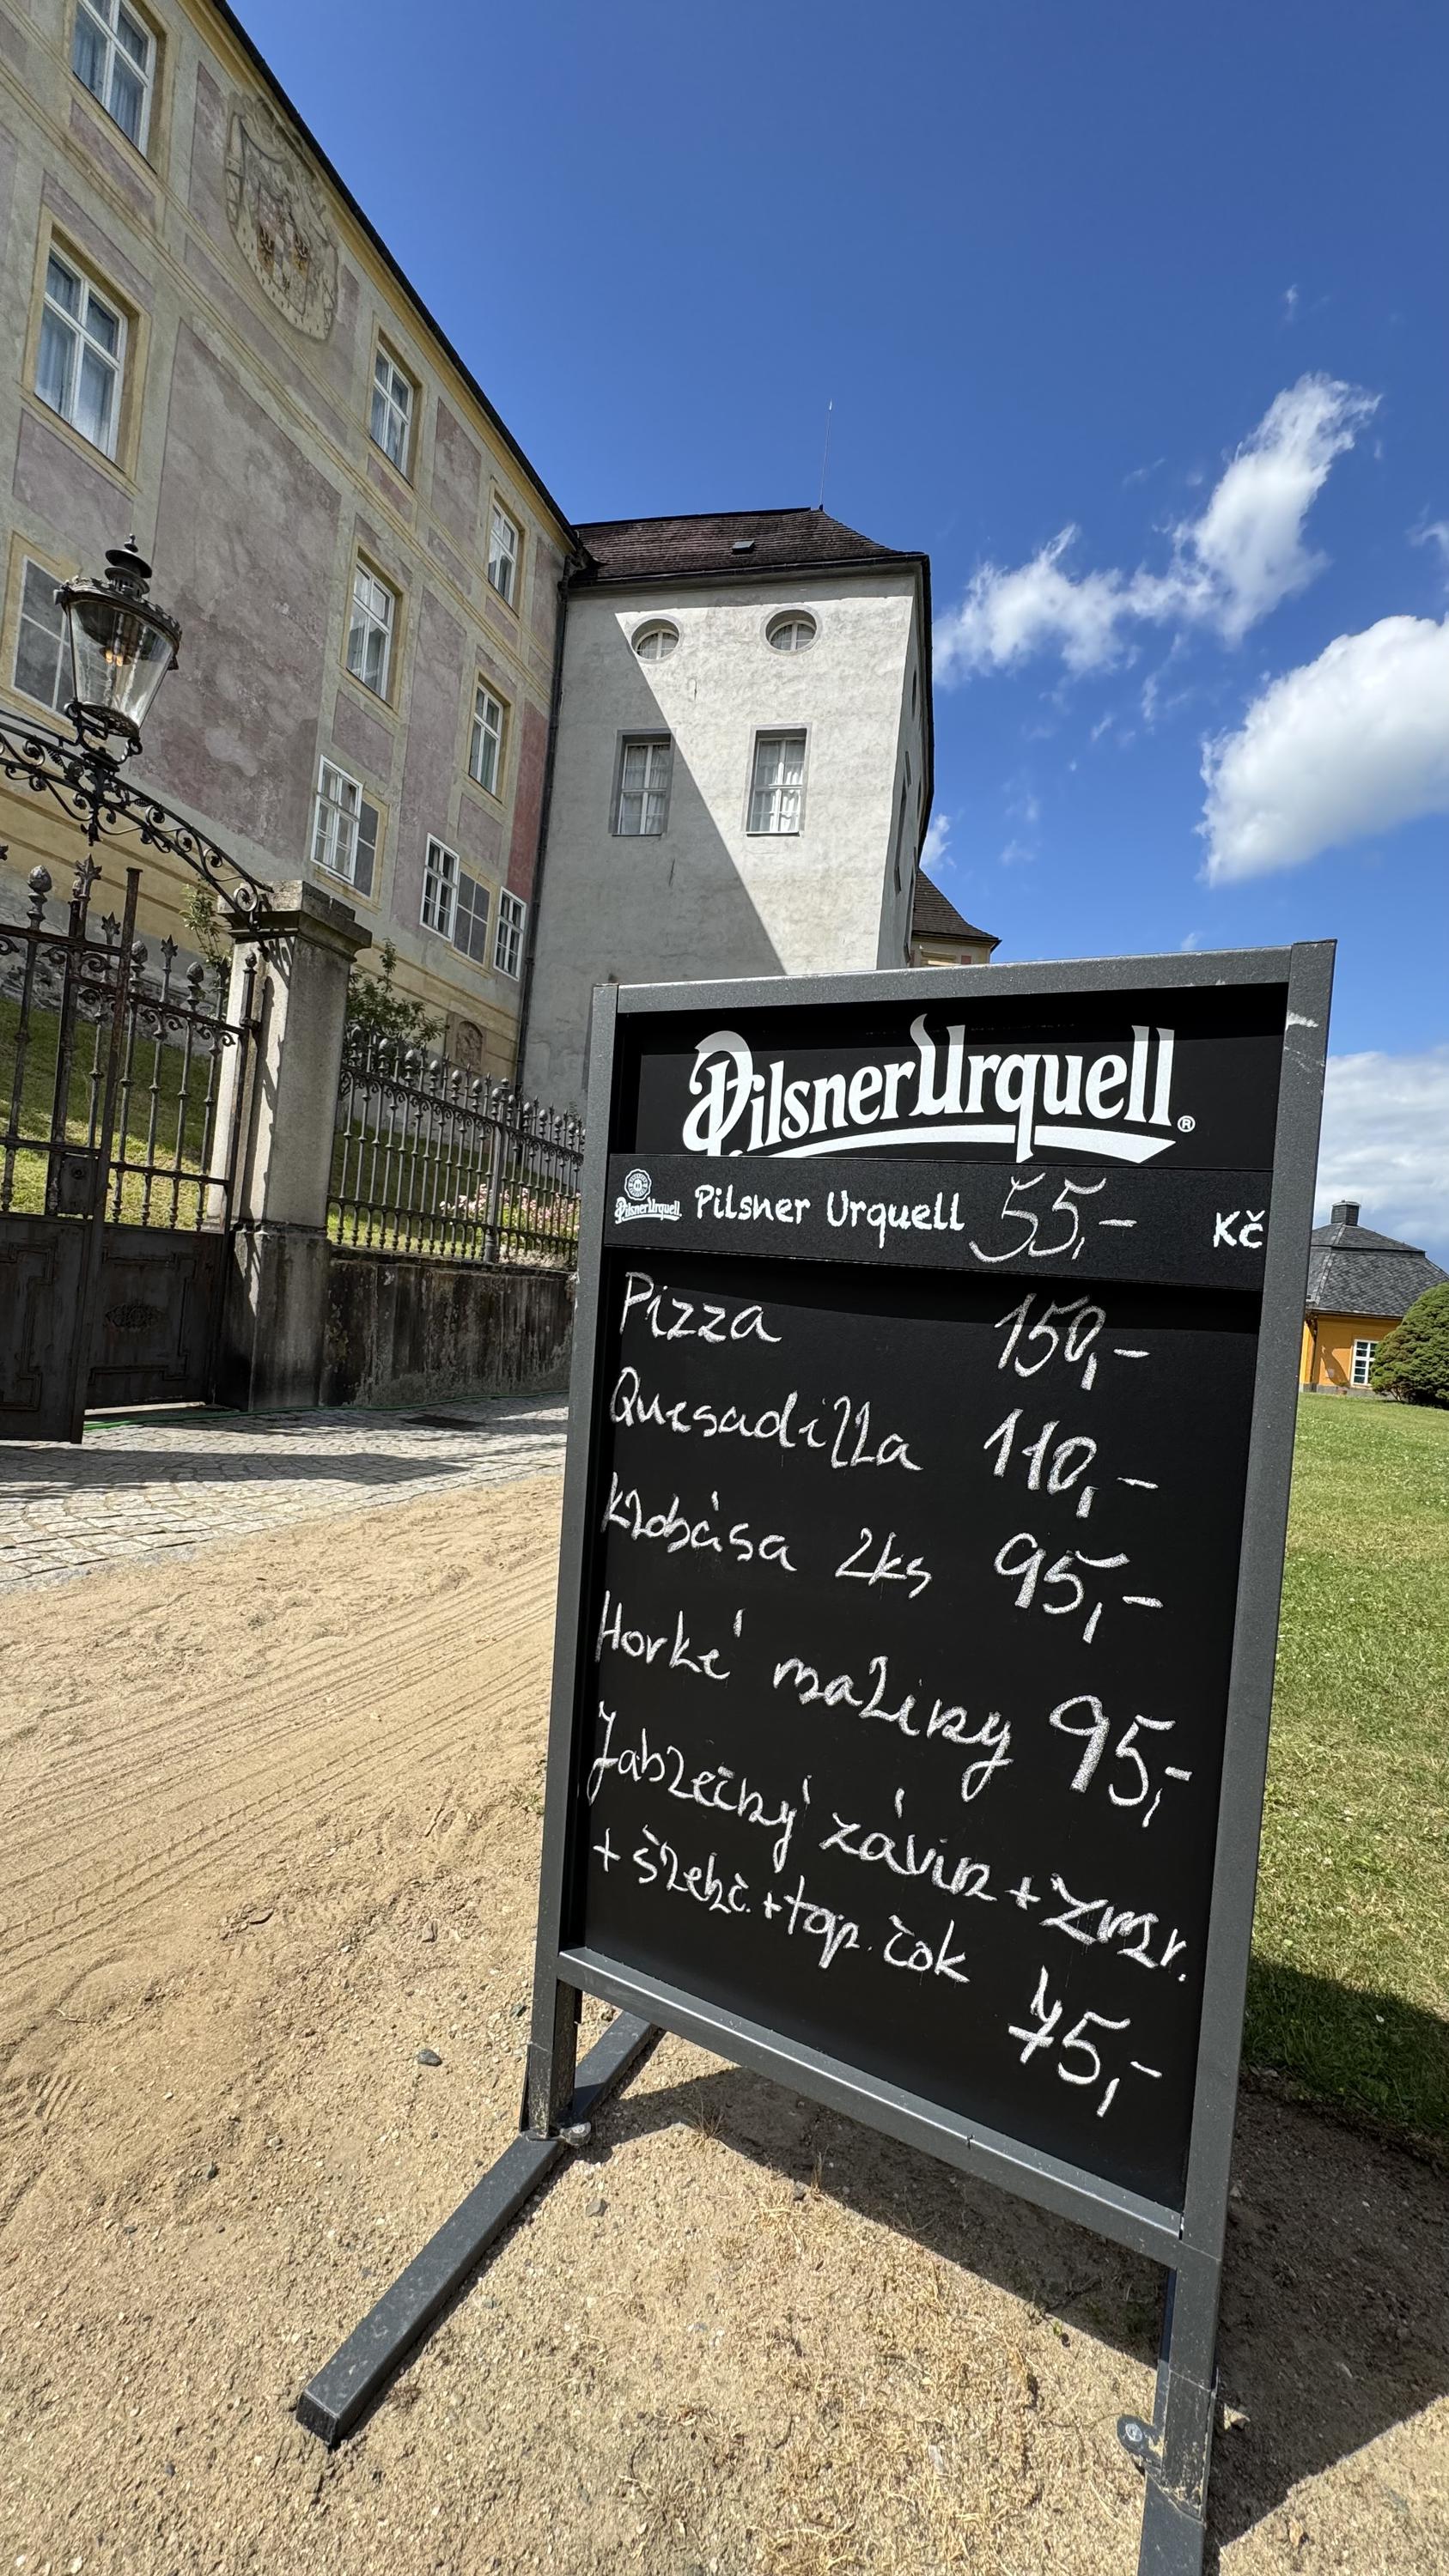 Pilsner Urquell ®
Pilsner Urquell Pilsner Urquell 55,- Kč
Pizza 150,-
Quesadilla 110,-
Klobása 2ks 95,-
Horké maliny 95,-
Jablečný závin + zmr.
+ šlehč. + top. čok
75,-